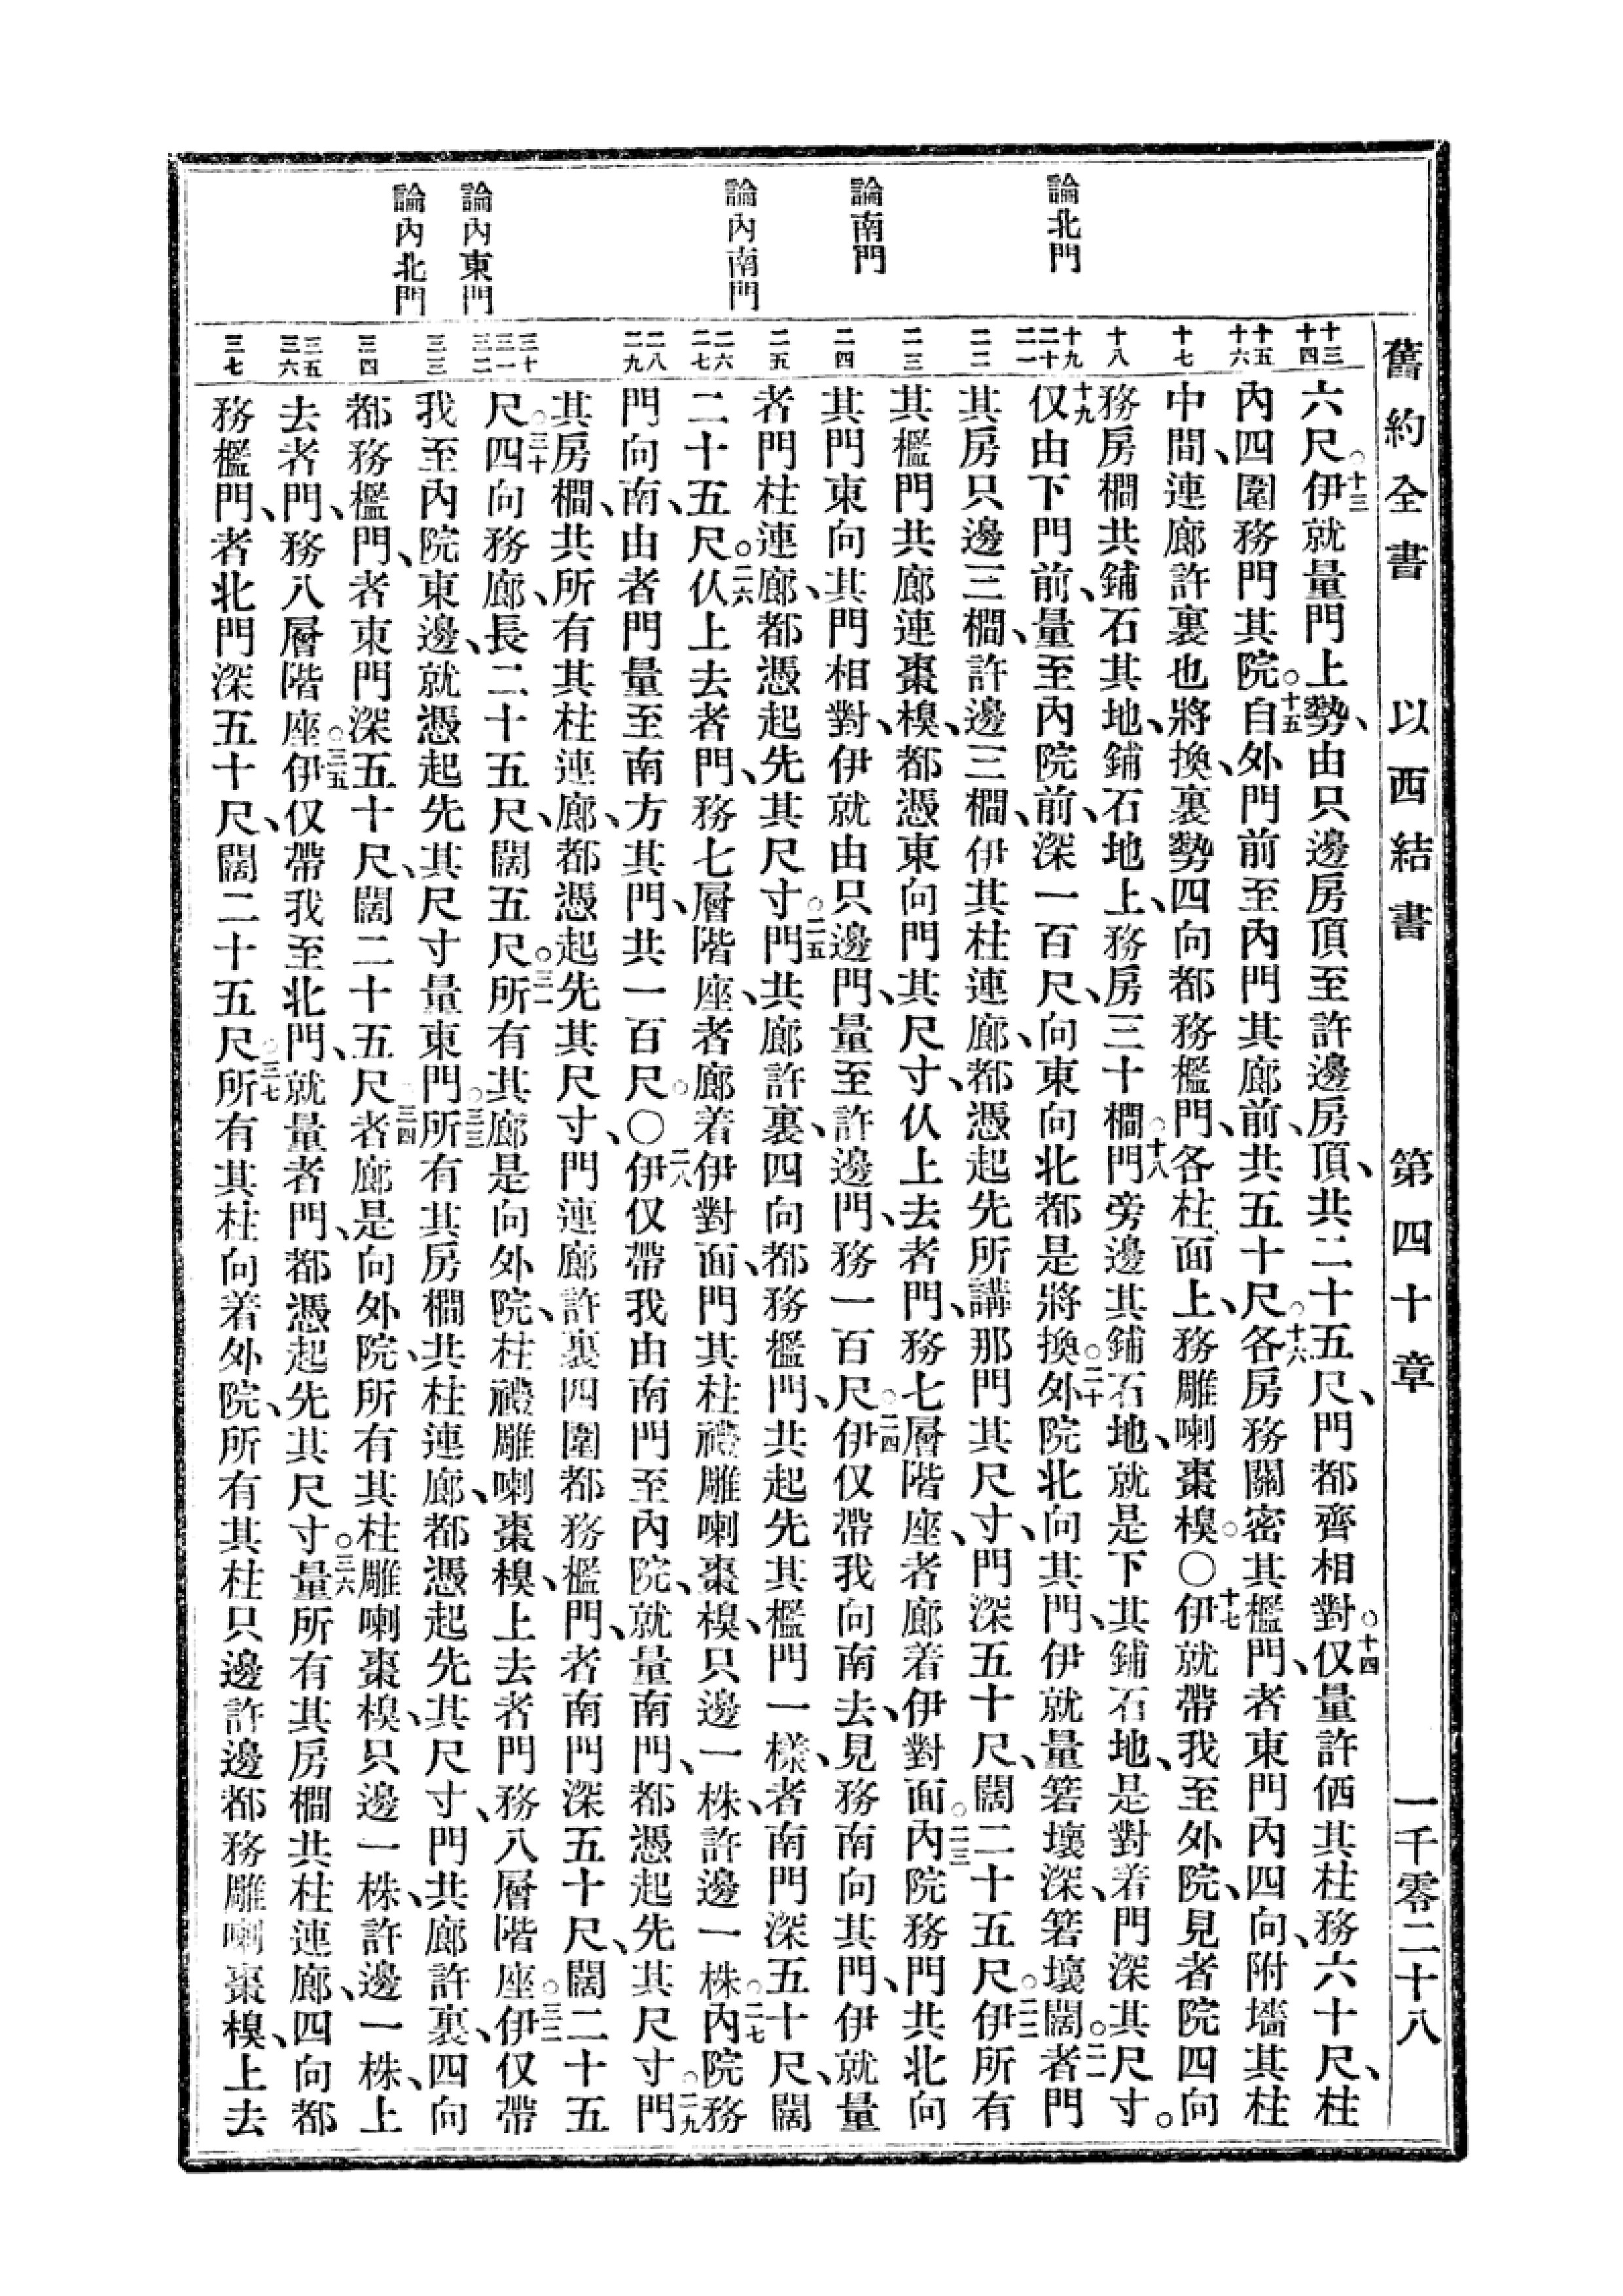 舊約全書 以西結書 第四十章 一千零二十八
論北門
論南門
論內南門
論內東門
論內北門
十三 十四
十五 十六
十七
十八
十九 二十 二一
二二
二三
二四
二五
二六 二七
二八 二九
三十 三一 三二
三三
三四
三五 三六
三七
六尺○十三伊就量門上勢、由只邊房頂至許邊房頂、共二十五尺、門都齊相對○十四仅量許価其柱、務六十尺、柱
內、四圍務門其院○十五自外門前至內門其廊前、共五十尺○十六各房務關密其檻門、者東門內四向、附墻其柱
中間、連廊許裏也將換、裏勢四向都務檻門、各柱面上、務雕喇棗槻○〇十七伊就帶我至外院、見者院四向
務房橺共鋪石其地、鋪石地上、務房三十橺○十八門旁邊其鋪石地、就是下其鋪石地、是對着門深其尺寸。
十九仅由下門前、量至內院前、深一百尺、向東向北都是將換○二十外院北向其門、伊就量箬壞深、箬壞闊○二一者門
其房只邊三橺、許邊三橺、伊其柱連廊、都憑起先所講那門其尺寸、門深五十尺、闊二十五尺○二二伊所有
其檻門共廊連棗槻、都憑東向門其尺寸、仈上去者門、務七層階座、者廊着伊對面○二三內院務門共北向
其門東向其門相對、伊就由只邊門、量至許邊門、務一百尺○二四伊仅帶我向南去、見務南向其門、伊就量
者門柱連廊、都憑起先其尺寸○二五門共廊許裏、四向都務檻門、共起先其檻門一樣、者南門深五十尺、闊
二十五尺○二六仈上去者門、務七層階座、者廊着伊對面、門其柱禮雕喇棗槻、只邊一株、許邊一株○二七內院務
門向南、由者門量至南方其門、共一百尺○〇二八伊仅帶我由南門至內院、就量南門、都憑起先其尺寸○二九門
其房橺、共所有其柱連廊、都憑起先其尺寸、門連廊許裏四圍都務檻門、者南門深五十尺、闊二十五
尺○三十四向務廊、長二十五尺、闊五尺○三一所有其廊是向外院、柱禮雕喇棗槻、上去者門務八層階座○三二伊仅帶
我至內院東邊、就憑起先其尺寸量東門○三三所有其房橺共柱連廊、都憑起先其尺寸、門共廊許裏、四向
都務檻門、者東門深五十尺、闊二十五尺○三四者廊是向外院、所有其柱雕喇棗槻、只邊一株、許邊一株、上
去者門、務八層階座○三五伊仅帶我至北門、就量者門、都憑起先其尺寸量○三六所有其房橺共柱連廊、四向都
務檻門、者北門深五十尺、闊二十五尺○三七所有其柱向着外院、所有其柱只邊許邊都務雕喇棗槻、上去